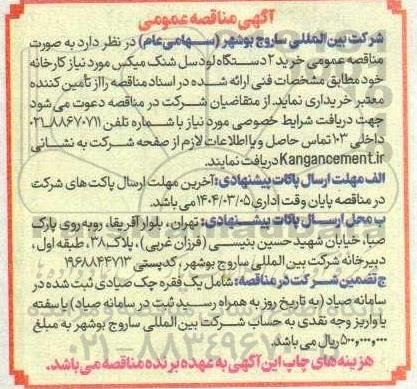 آگهی مناقصه عمومی
شرکت بین‌المللی ساروج بوشهر (سهامی‌عام) در نظر دارد به صورت
مناقصه عمومی خرید ۲ دستگاه لودسل شنک میکس مورد نیاز کارخانه
خود مطابق مشخصات فنی ارائه شده در اسناد مناقصه را از تأمین کننده
معتبر خریداری نماید. از متقاضیان شرکت در مناقصه دعوت می شود
جهت دریافت شرایط خصوصی مورد نیاز با شماره تلفن ۸۸۶۷۰۷۱۱-۰۲۱
داخلی ۱۰۳ تماس حاصل و یا اطلاعات لازم از صفحه شرکت به نشانی
Kangancement.ir دریافت نمایند.
الف مهلت ارسال پاکات پیشنهادی: آخرین مهلت ارسال پاکت های شرکت
در مناقصه پایان وقت اداری ۱۴۰۴/۰۳/۰۵ می باشد.
ب محل ارسال پاکات پیشنهادی: تهران، بلوار آفریقا، روبه روی پارک
صبا، خیابان شهید حسین بنیسی (فرزان غربی)، پلاک ۳۸، طبقه اول،
دبیرخانه شرکت بین المللی ساروج بوشهر، کدپستی ۱۹۶۸۸۴۴۷۱۳
ج تضمین شرکت در مناقصه: شامل یک فقره چک صیادی ثبت شده در
سامانه صیاد (به تاریخ روز به همراه رسید ثبت در سامانه صیاد) یا سفته
یا واریز وجه نقدی به حساب شرکت بین المللی ساروج بوشهر به مبلغ
۵۰۰,۰۰۰,۰۰۰ ریال می باشد.
هزینه های چاپ این آگهی به عهده برنده مناقصه می باشد.